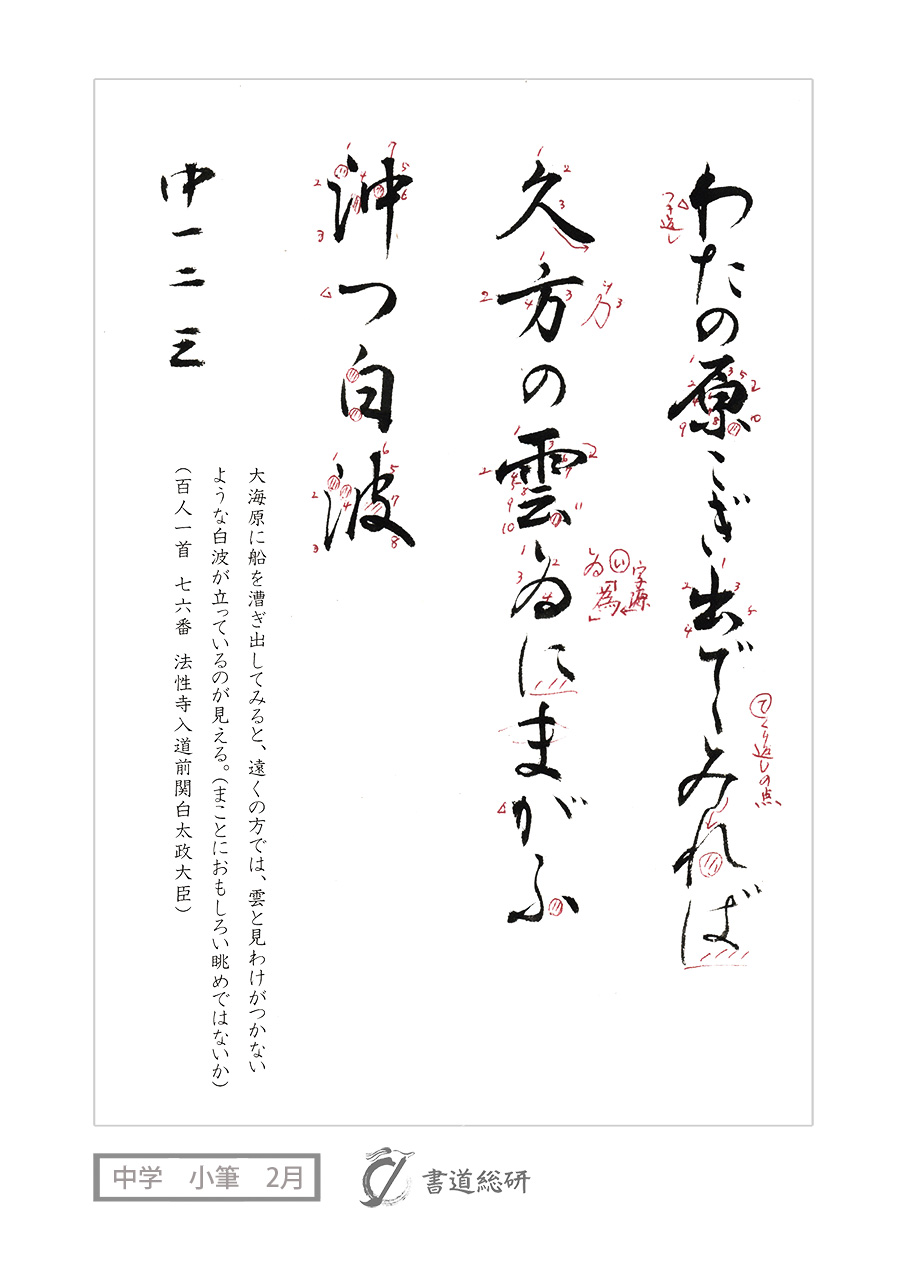 わたの原こぎ出でゝみれば
つき返し
て くり返しの点
久方の雲ゐにまがふ
方
字源
い
ゐ 為
沖つ白波
中一二三
大海原に船を漕ぎ出してみると、遠くの方では、雲と見わけがつかない
ような白波が立っているのが見える。(まことにおもしろい眺めではないか)
(百人一首 七六番 法性寺入道前関白太政大臣)
中学 小筆 2月
書道総研